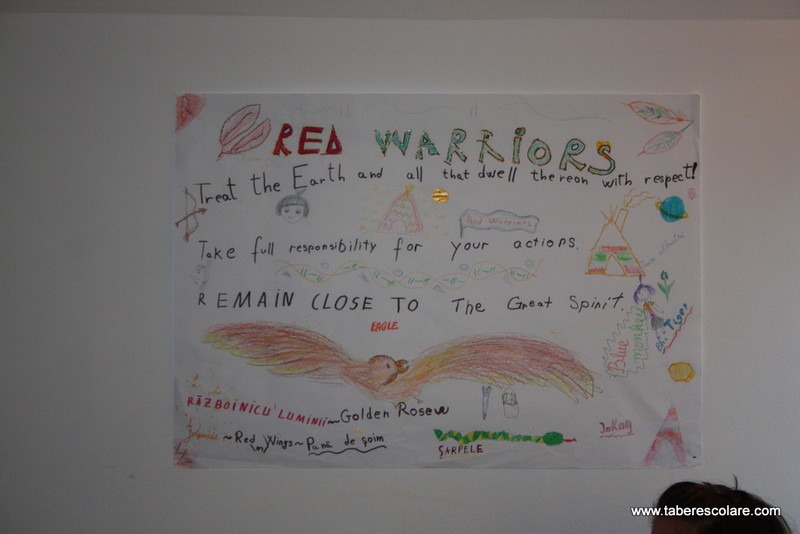 RED WARRIORS
Treat the Earth and all that dwell thereon with respect!
Red Warriors
Take full responsibility for your actions.
REMAIN CLOSE TO The Great Spirit
EAGLE
Blue
monkey
Tiger
RĂZBOINICU LUMINII ~ Golden Rose
~ Red Wings ~ Pană de șoim
ȘARPELE
JaKay
www.taberescolare.com